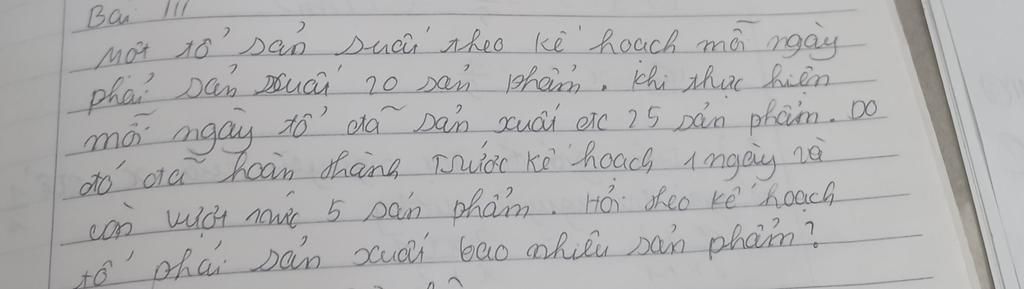 Bài III
Một tổ sản suất theo kế hoạch mỗi ngày
phải sản xuất 20 sản phẩm. Khi thực hiện
mỗi ngày tổ đã sản xuất đc 25 sản phẩm. Do
đó đã hoàn thành trước kế hoạch 1 ngày và
còn vượt mức 5 sản phẩm. Hỏi theo kế hoạch
tổ phải sản xuất bao nhiêu sản phẩm?